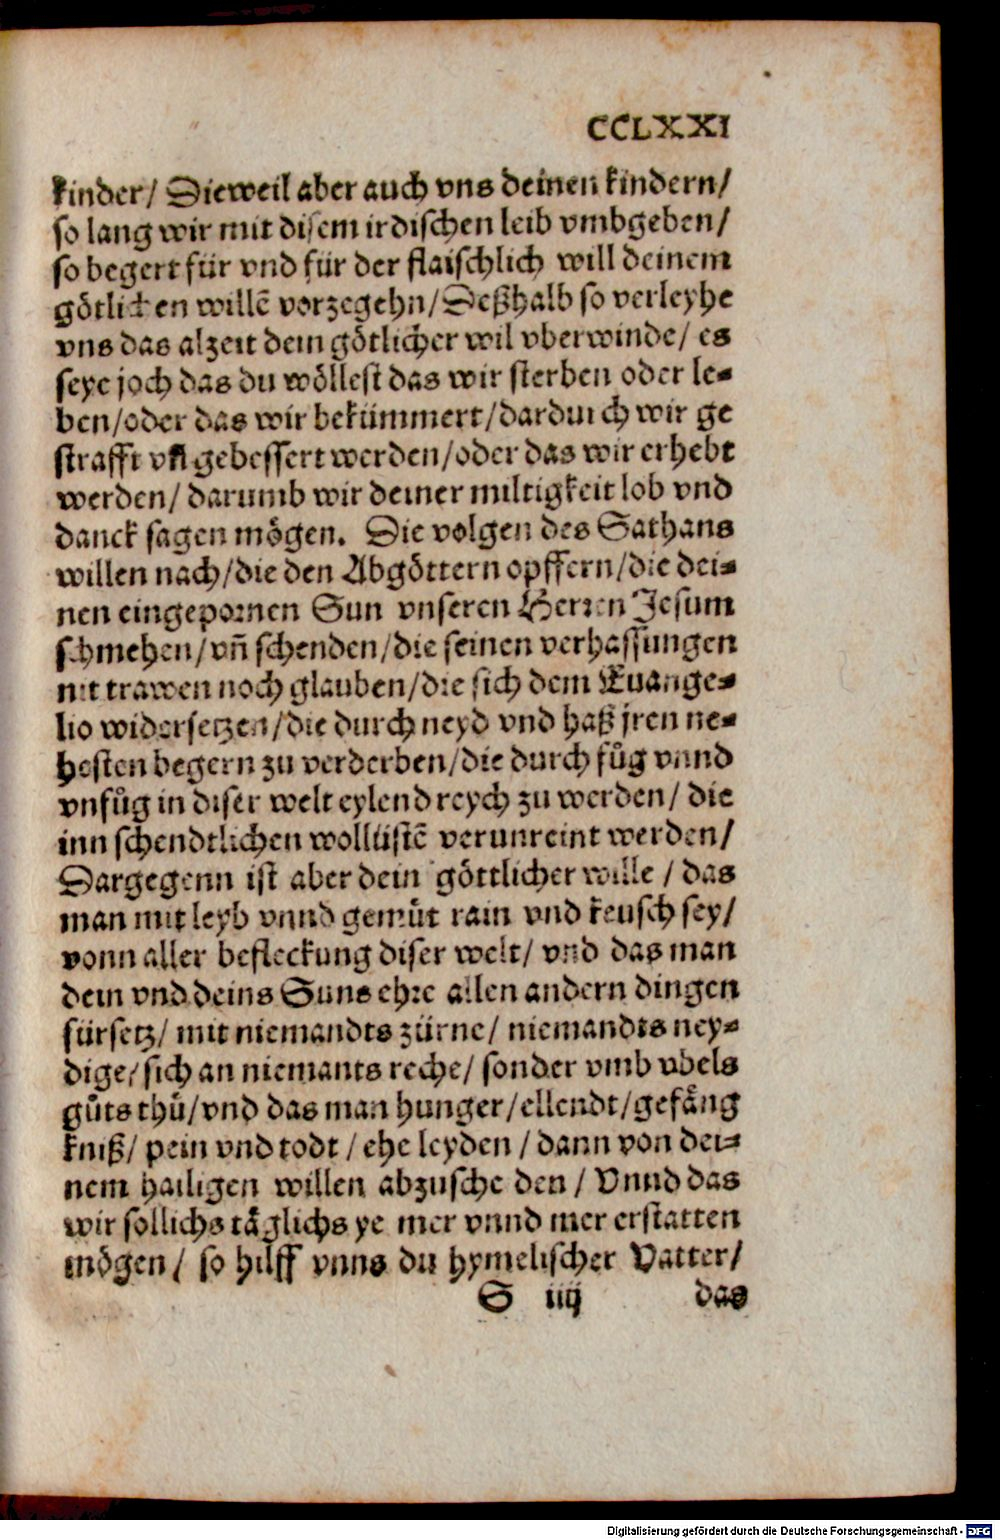 CCLXXI
kinder/ Dieweil aber auch vns deinen kindern/
so lang wir mit disem irdischen leib vmbgeben/
so begert für vnd für der flaischlich will deinem
götlichen willē vorzegehn/ Deßhalb so verleyhe
vns das alzeit dein götlicher wil vberwinde/ es
seye joch das du wöllest das wir sterben oder le⸗
ben/oder das wir bekümmert/dardurch wir ge
strafft vñ gebessert werden/oder das wir erhebt
werden/ darumb wir deiner miltigkeit lob vnd
danck sagen mögen. Die volgen des Sathans
willen nach/die den Abgöttern opffern/die dei⸗
nen eingepornen Sun vnseren Herren Jesum
schmehen/vñ schenden/die seinen verhassungen
nit trawen noch glauben/die sich dem Euange⸗
lio widersetzen/die durch neyd vnd haß jren ne⸗
hesten begern zu verderben/die durch fůg vnnd
vnfůg in diser welt eylend reych zu werden/ die
inn schendtlichen wollüstē verunreint werden/
Dargegenn ist aber dein göttlicher wille / das
man mit leyb vnnd gemůt rain vnd keusch sey/
vonn aller befleckung diser welt/ vnd das man
dein vnd deins Suns ehre allen andern dingen
fürsetz/ mit niemandts zürne/ niemandts ney⸗
dige/sich an niemants reche/ sonder vmb vbels
gůts thů/vnd das man hunger/ellendt/gefäng
kniß/ pein vnd todt / ehe leyden / dann von dei⸗
nem hailigen willen abzusche den / Vnnd das
wir sollichs täglichs ye mer vnnd mer erstatten
mögen / so hilff vnns du hymelischer Vatter/
S iiij das
Digitalisierung gefördert durch die Deutsche Forschungsgemeinschaft - DFG